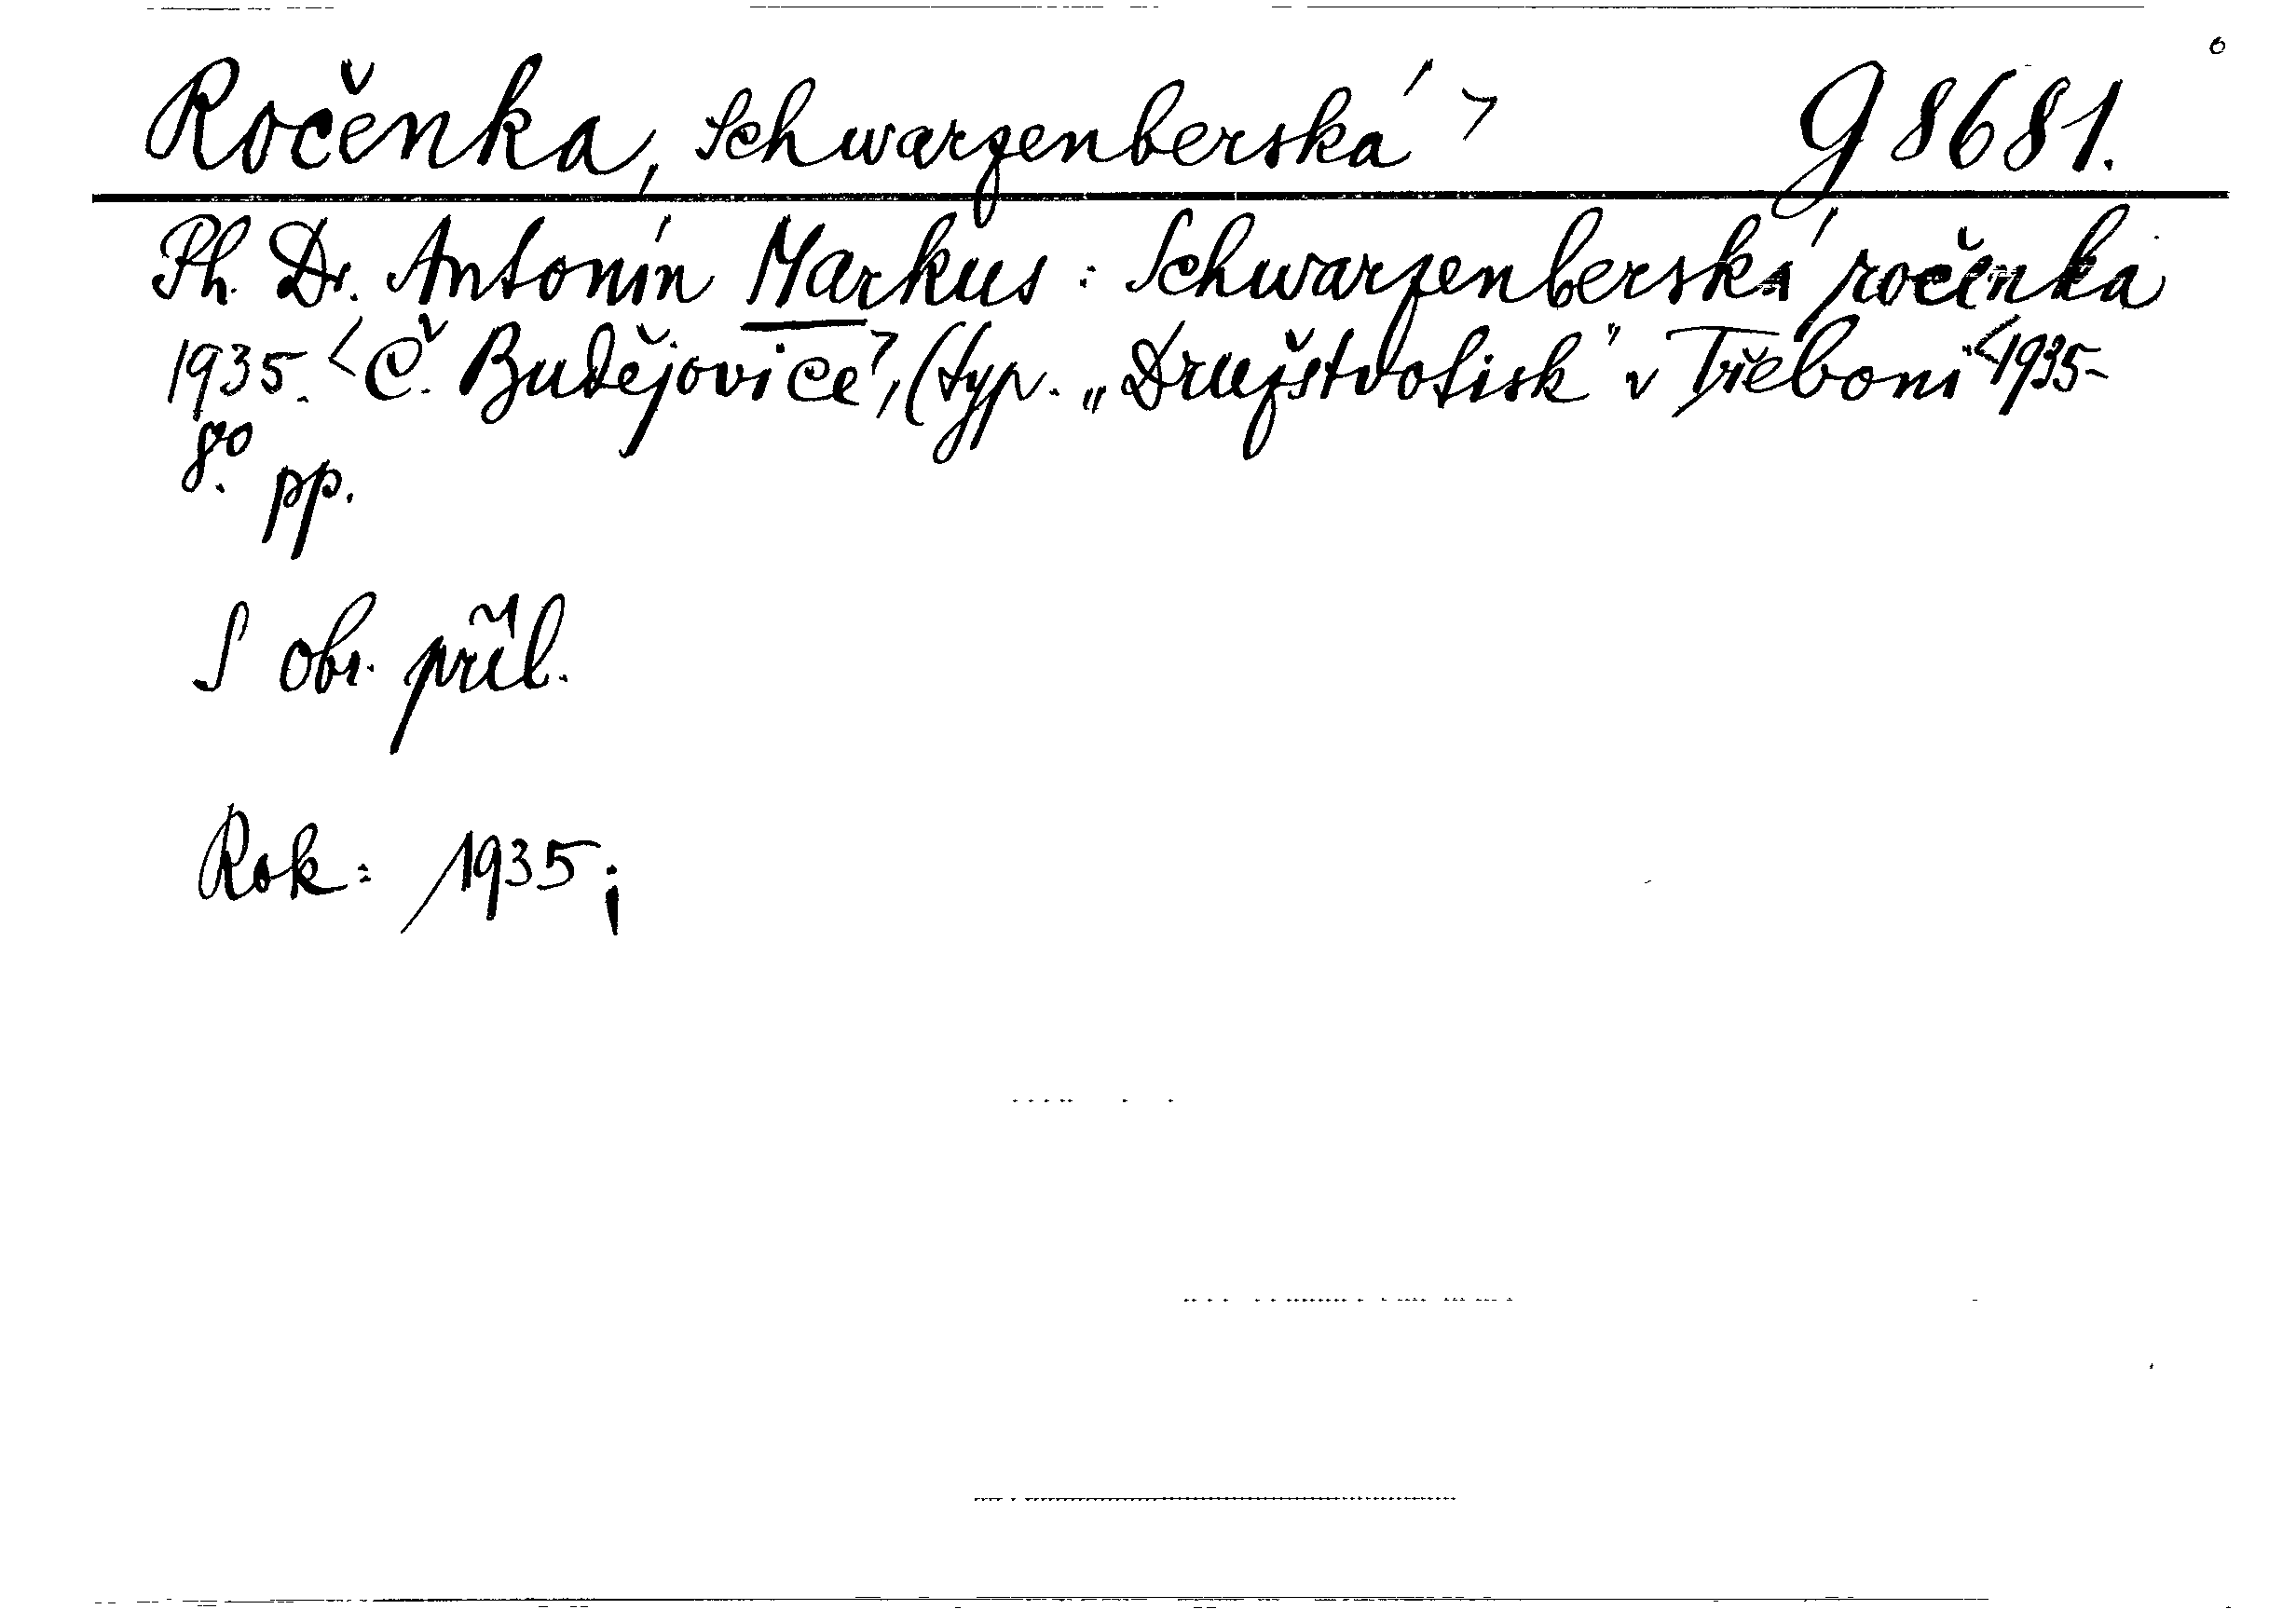 Ročenka, Schwarzenberská > G 8681.
Ph. Dr. Antonín Markus : Schwarzenberská ročenka
1935. <Č. Budějovice>, (typ. „Družstvotisk" v Třeboni <1935-
8.º pp.
S obr. příl.
Rok: 1935;